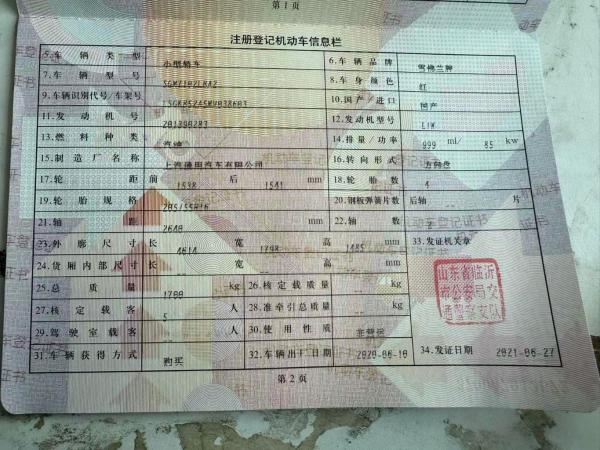 第1页
注册登记机动车信息栏
5.车辆类型 小型轿车 6.车辆品牌 雪佛兰牌
7.车辆型号 8.车身颜色 红
9.车辆识别代号/车架号 10.国产/进口 国产
11.发动机号 12.发动机型号 LIW
13.燃料种类 汽油 14.排量/功率 999 ml/ 85 kw
15.制造厂名称 上汽通用汽车有限公司 16.转向形式 方向盘
17.轮距 前 1538 后 1541 mm 18.轮胎数 4
19.轮胎规格 205/55R16 20.钢板弹簧片数 后轴 -- 片
21.轴距 2640 mm 22.轴数 2
23.外廓尺寸 长 4614 宽 1798 高 1485 mm 33.发证机关章
24.货厢内部尺寸 长 宽 高 mm
25.总质量 1708 kg 26.核定载质量 -- kg
27.核定载客 5 人 28.准牵引总质量 -- kg
29.驾驶室载客 -- 人 30.使用性质 非营运
31.车辆获得方式 购买 32.车辆出厂日期 2020-06-10 34.发证日期 2021-06-27
山东省临沂
市公安局交
通警察支队
第2页